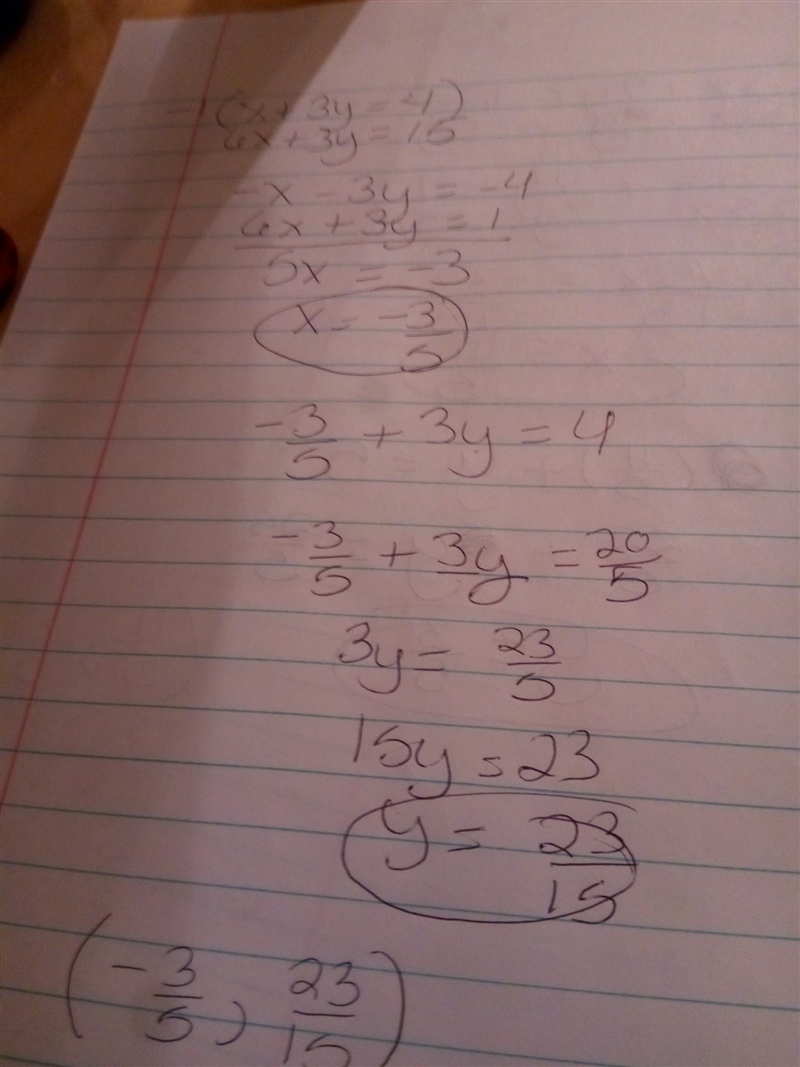 -1(x+3y=4)
6x+3y=15
-x-3y=-4
6x+3y=1
5x=-3
x=-3/5
-3/5+3y=4
-3/5+3y=20/5
3y=23/5
15y=23
y=23/15
(-3/5, 23/15)